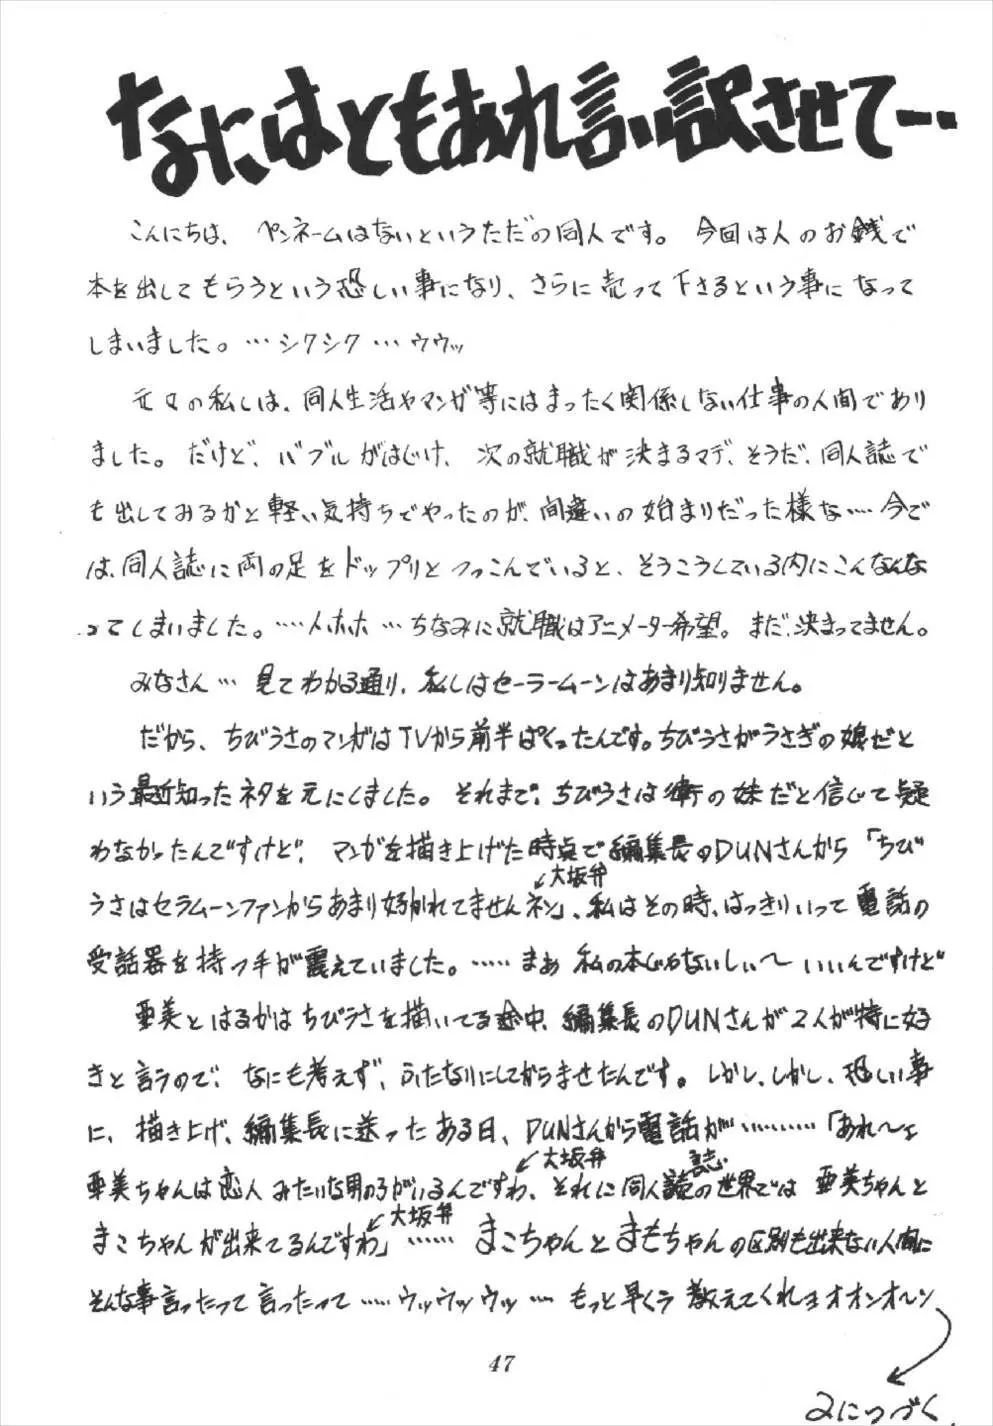 なにはともあれ言い訳させて…
こんにちは、ペンネームはないというただの同人です。今回は人のお銭で
本を出してもらうという恐しい事になり、さらに売って下さるという事になって
しまいました。…シクシク…ウウッ
元々の私しは、同人生活やマンガ等にはまったく関係しない仕事の人間であり
ました。だけど、バブルがはじけ、次の就職が決まるマデ、そうだ、同人誌で
も出してみるかと軽い気持ちでやったのが、間違いの始まりだった様な…今で
は、同人誌に両の足をドップリとつっこんでいると、そうこうしている内にこんなんな
ってしまいました。……ホホ…ちなみに就職はアニメーター希望。まだ、決まってません。
みなさん…見てわかる通り、私しはセーラームーンはあまり知りません。
だから、ちびうさのマンガはTVから前半ぱくったんです。ちびうさがうさぎの娘だと
いう最近知ったネタを元にしました。それまで、ちびうさは衛の妹だと信じて疑
わなかったんですけど、マンガを描き上げた時点で編集長のDUNさんから「ちび
うさはセラムーンファンからあまり好かれてませんネン」、私はその時、はっきりいって電話の
大坂弁
受話器を持つ手が震えていました。……まあ私の本じゃないしぃ〜いいんですけど
亜美とはるかはちびうさを描いてる途中、編集長のDUNさんが2人が特に好
きと言うので、なにも考えず、ふたなりにしてからませたんです。しかし、しかし、恐しい事
に、描き上げ、編集長に送ったある日、DUNさんから電話が…………「あれ〜ェ
亜美ちゃんは恋人みたいな男の子がいるんですわ、それに同人誌の世界では亜美ちゃんと
大坂弁
まこちゃんが出来てるんですわ」……まこちゃんとまもちゃんの区別も出来ない人間に
大坂弁
そんな事言ったって言ったって……ウッウッウッ…もっと早くう教えてくれョオオンオ〜ン
47
2につづく